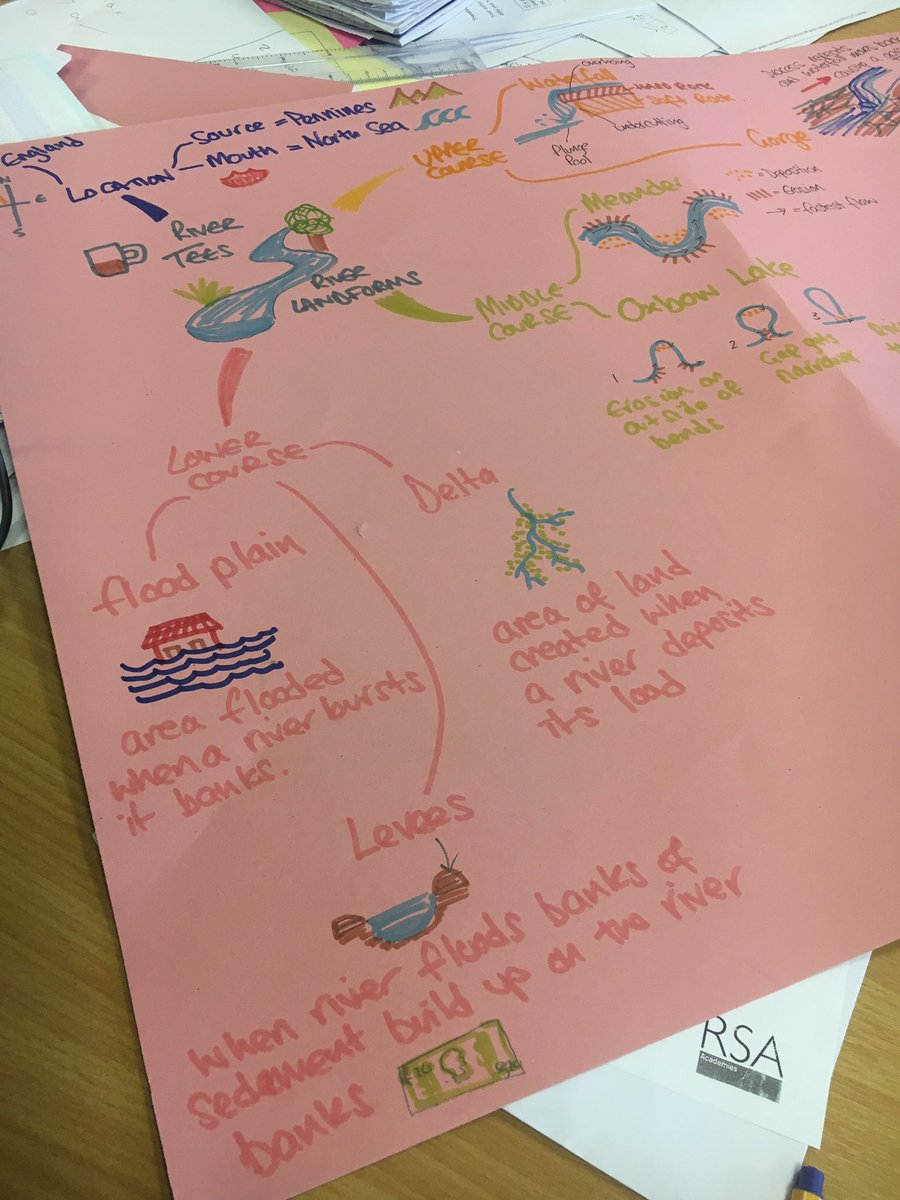 England
N
E
S
LOCATION
Source = Pennines
Mouth = North Sea
RIVER
TEES
RIVER
LANDFORMS
UPPER
COURSE
Waterfall
overhang
HARD ROCK
Soft Rock
undercutting
Plunge
Pool
Gorge
causing a
MIDDLE
COURSE
Meander
= Deposition
= Erosion
→ = fastest flow
Oxbow Lake
1
2
3
Erosion on
outside of
bends
Gap gets
narrower
LOWER
COURSE
flood plain
area flooded
when a river bursts
it banks.
Delta
area of land
created when
a river deposits
its load
Levees
when river floods banks of
sedement build up on the river
banks
£20
RSA
Academies